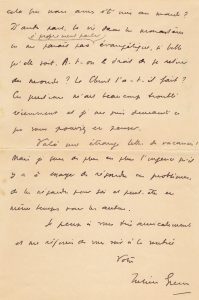 celui que nous aimons est mis au monde ?
D'autre part, la vie dans le monastère
à proprement parler
ne me paraît pas évangélique, si belle
qu'elle soit. A-t-on le droit de se retirer
du monde ? Le Christ l'a-t-il fait ?
Ces questions m'ont beaucoup troublé
récemment et je me suis demandé ce
que vous pouviez en penser.
Voilà une étrange lettre de vacances !
Mais je sens de plus en plus l'urgence qu'il
y a à essayer de répondre aux problèmes,
de les répondre pour soi et peut-être en
même temps pour les autres.
Je pense à vous très amicalement
et me réjouis de vous voir à la rentrée
Votre
Julien Green